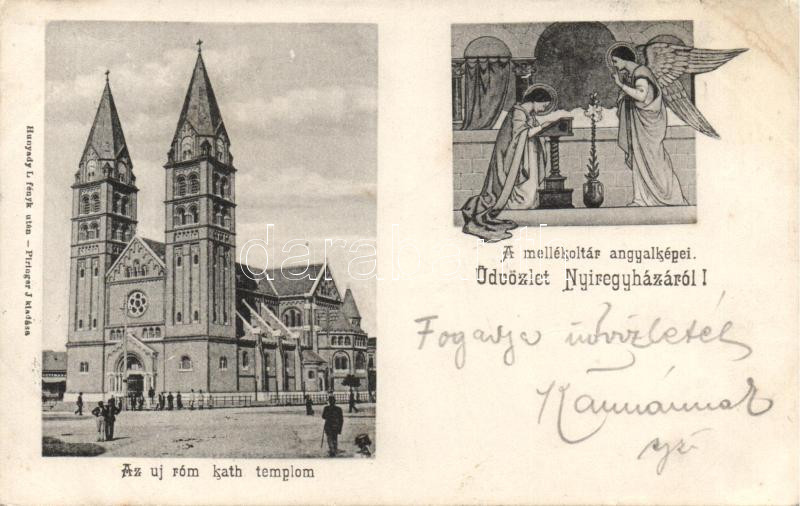 Hunyady L. fényk. után — Piringer J. kiadása
Az uj róm kath templom
A mellékoltár angyalképei.
Üdvözlet Nyiregyházáról!
Fogadja üdvözletét
darabanth.com